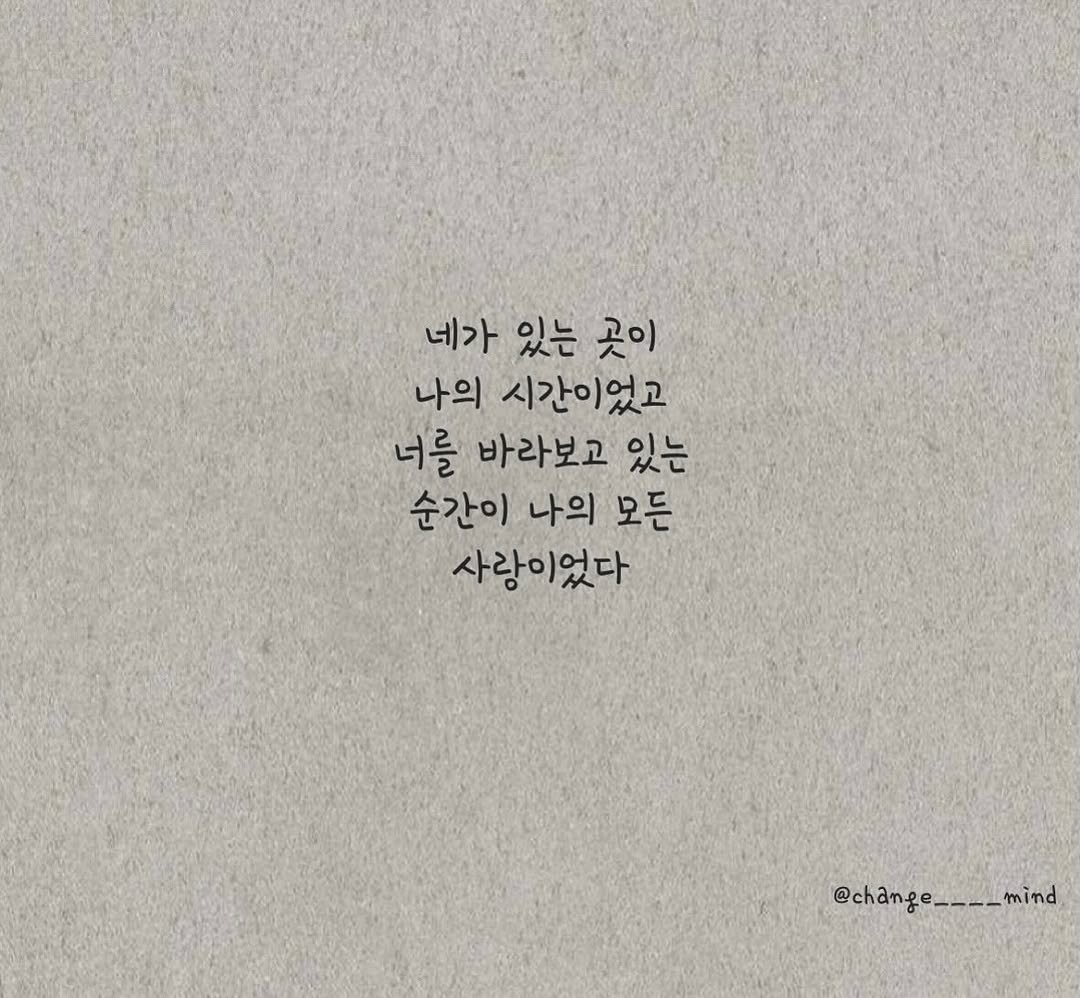 네가 있는 곳이
나의 시간이었고
너를 바라보고 있는
순간이 나의 모든
사랑이었다
@change____mind